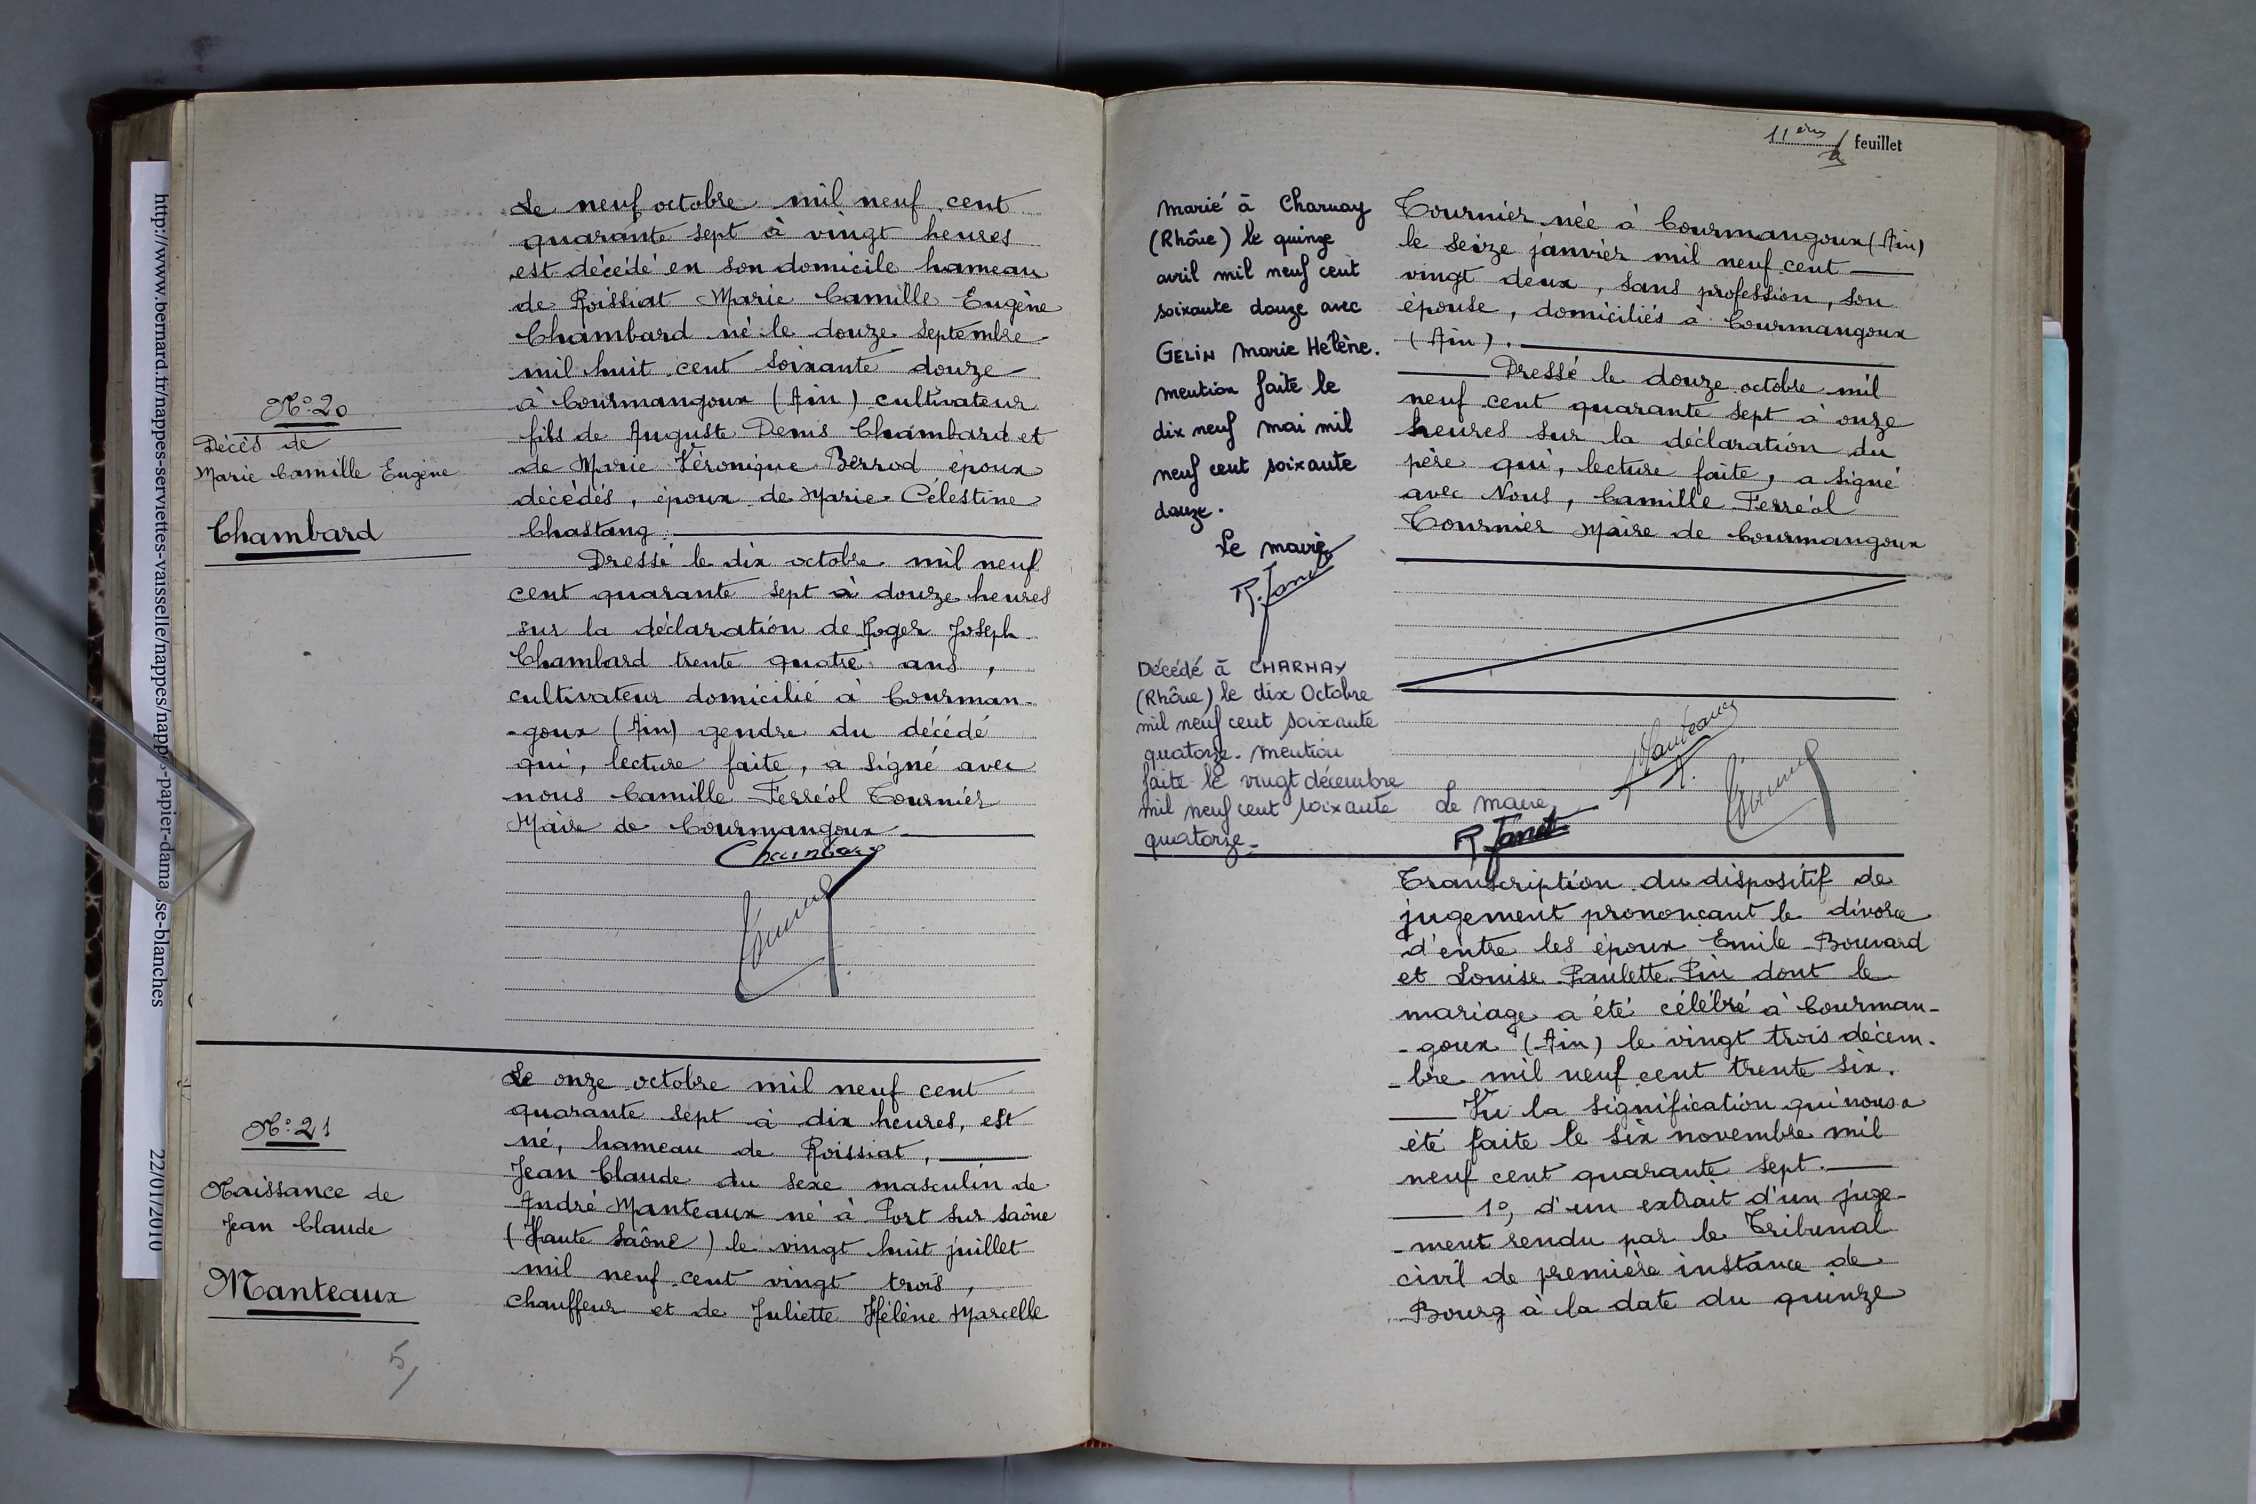 N° 20
Décès de
Marie Camille Eugène
Chambard
Le neuf octobre mil neuf cent
quarante sept à vingt heures
est décédé en son domicile hameau
de Roissiat Marie Camille Eugène
Chambard né le douze septembre
mil huit cent soixante douze
à Courmangoux (Ain) cultivateur
fils de Auguste Denis Chambard et
de Marie Véronique Berrod époux
décédés, époux de Marie Célestine
Chastang.
Dressé le dix octobre mil neuf
cent quarante sept à douze heures
sur la déclaration de Roger Joseph
Chambard trente quatre ans,
cultivateur domicilié à Courman-
-goux (Ain) gendre du décédé
qui, lecture faite, a signé avec
nous Camille Ferréol Tournier
Maire de Courmangoux
Chambard
N° 21
Naissance de
Jean Claude
Manteaux
5
Le onze octobre mil neuf cent
quarante sept à dix heures, est
né, hameau de Roissiat,
Jean Claude du sexe masculin de
André Manteaux né à Port sur Saône
(Haute Saône) le vingt huit juillet
mil neuf cent vingt trois,
chauffeur et de Juliette Hélène Marcelle
http://www.bernard.fr/nappes-serviettes-vaisselle/nappes/nappes-papier-damasse-blanches
22/01/2010
11ème feuillet
Marié à Charnay
(Rhône) le quinze
avril mil neuf cent
soixante douze avec
GELIN Marie Hélène.
mention faite le
dix neuf mai mil
neuf cent soixante
douze.
Le maire
R. Janet
Décédé à CHARNAY
(Rhône) le dix Octobre
mil neuf cent soixante
quatorze. mention
faite le vingt décembre
mil neuf cent soixante
quatorze.
Le maire
R Janet
Tournier née à Courmangoux (Ain)
le seize janvier mil neuf cent
vingt deux, sans profession, son
épouse, domiciliés à Courmangoux
(Ain).
Dressé le douze octobre mil
neuf cent quarante sept à onze
heures sur la déclaration du
père qui, lecture faite, a signé
avec Nous, Camille Ferréol
Tournier Maire de Courmangoux
Manteaux
A.
Transcription du dispositif de
jugement prononçant le divorce
d'entre les époux Emile Bouvard
et Louise Paulette Pin dont le
mariage a été célébré à Courman-
-goux (Ain) le vingt trois décem-
-bre mil neuf cent trente six.
Vu la signification qui nous a
été faite le six novembre mil
neuf cent quarante sept.
1°, d'un extrait d'un juge-
-ment rendu par le Tribunal
civil de première instance de
Bourg à la date du quinze